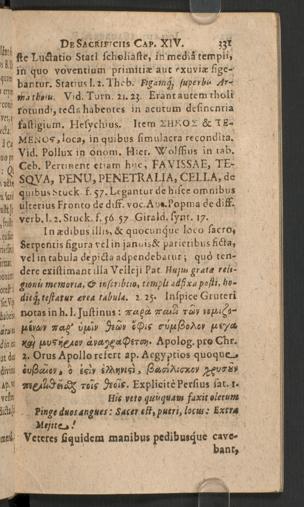 DE SACRIFICIIS CAP. XIV. 331
ste Luctatio Statl scholiaste, in mediâ templi,
in quo voventium primitiæ aut exuviæ fige-
bantur. Statius l. 2. Theb.
Vid. Turn. 21. 23. Erant autem tholi
rotundi, tecta habentes in acutum desinentia
fastigium. Hesychius. Item ΣΗΚΟΣ & ΤΕ-
ΜΕΝΟΣ, loca, in quibus simulacra recondita.
Vid. Pollux in onom. Hier. Wolfius in tab.
Ceb. Pertinent etiam huc, FAVISSAE, TE-
SQVA, PENU, PENETRALIA, CELLA, de
quibus Stuck. f. 57. Legantur de hisce omnibus
ulterius Fronto de diff. voc. Aus. Popma de diff.
verb. l. 2. Stuck. f. 56. 57. Girald. synt. 17.
In ædibus illis, & quocunque loco sacro,
Serpentis figura vel in januis & parietibus ficta,
vel in tabula depicta adpendebatur; quò ten-
dere existimant illa Velleji Pat. Hujus grata reli-
gionis memoria, & inscriptio, templi adfixa posti, ho-
dieq; testatur ærea tabula. 2. 25. Inspice Gruteri
notas in h. l. Justinus: παρὰ παντὶ τῶν νομιζο-
μένων παρ' ὑμῖν θεῶν ὄφις σύμβολον μέγα
καὶ μυστήριον ἀναγράφεται. Apolog. pro Chr.
2. Orus Apollo refert ap. Aegyptios quoque
οὐβαῖον, ὅ ἐστιν ἑλληνιστὶ, βασιλίσκον χρυσοῦν
περιτιθέναι τοῖς θεοῖς. Explicitè Persius sat. 1.
Hic veto quisquam faxit oletum
Pinge duos angues: Sacer est, pueri, locus: Extra
Mejite!
Veteres siquidem manibus pedibusque cave-
bant,